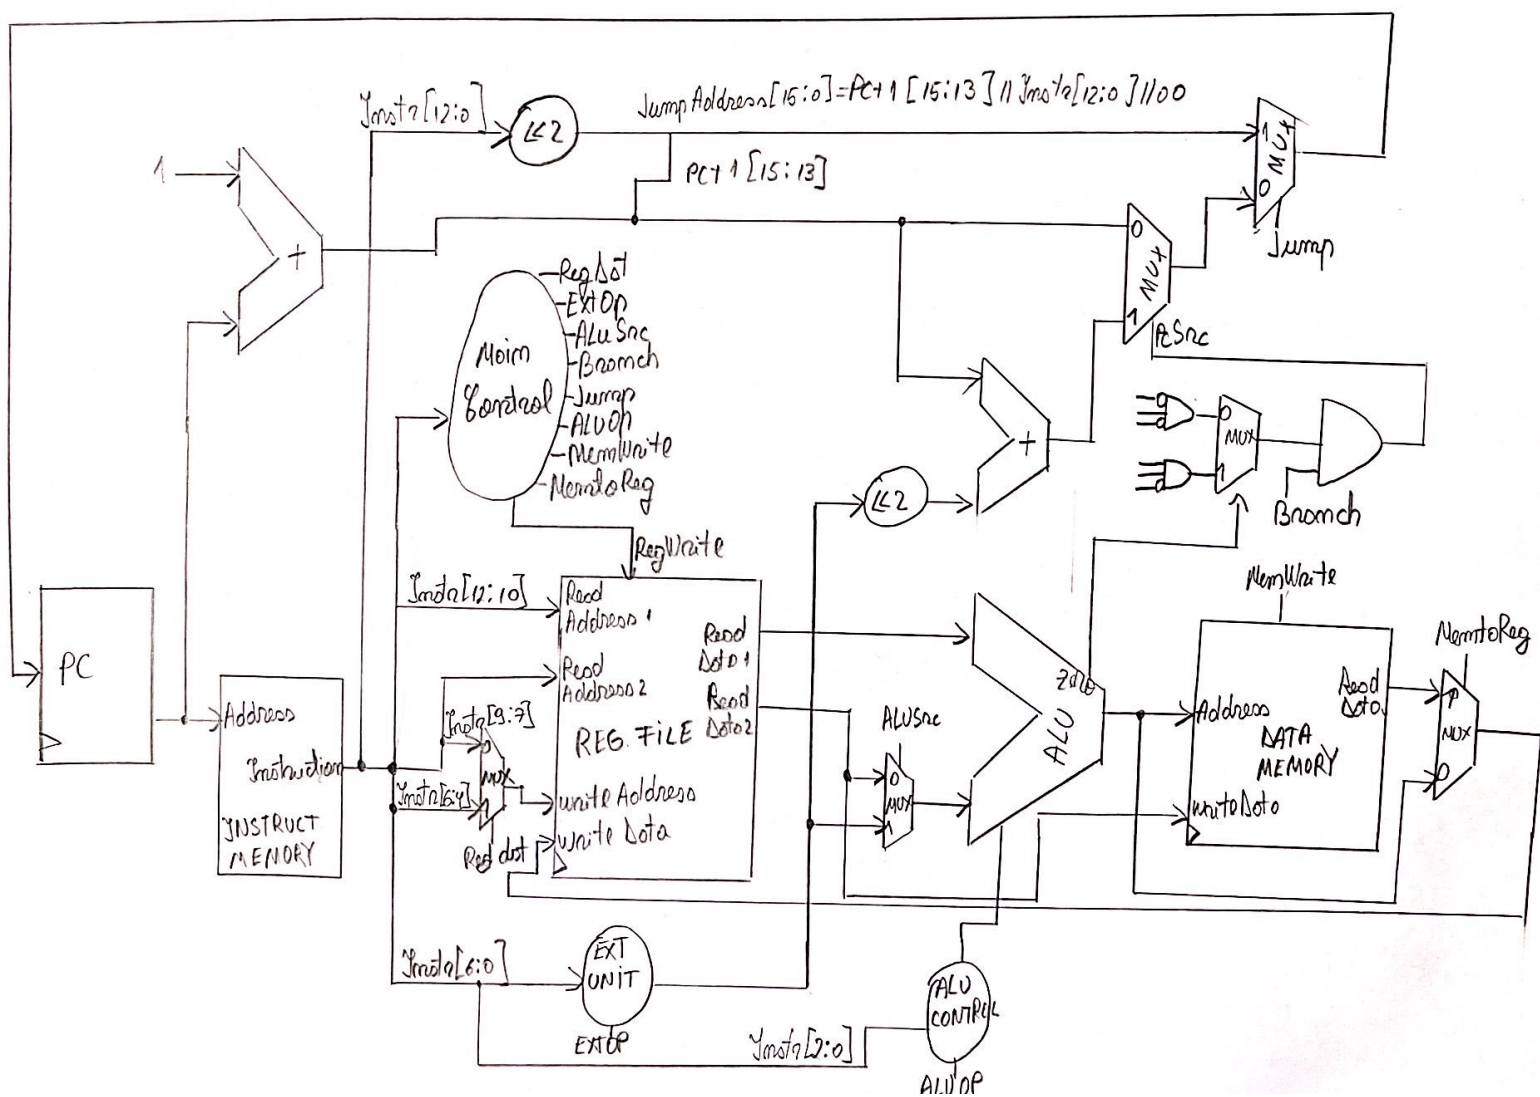 Instr[12:0]
<<2
JumpAddress[15:0]=PC+1[15:13]//Instr[12:0]//00
1
MUX
0
Jump
1
PC+1[15:13]
+
0
MUX
1
PcSrc
Main
Control
RegDst
ExtOp
ALUSrc
Branch
Jump
ALUOp
MemWrite
MemtoReg
RegWrite
+
<<2
0
MUX
1
Branch
PC
Address
Instruction
INSTRUCT
MEMORY
Instr[12:10]
Instr[9:7]
Instr[6:4]
0
MUX
1
Reg dst
Read
Address 1
Read
Address 2
REG. FILE
Write Address
Write Data
Read
Data 1
Read
Data 2
ALUSrc
0
MUX
1
Zero
ALU
MemWrite
Address
DATA
MEMORY
Read
Data
Write Data
MemtoReg
1
MUX
0
Instr[6:0]
EXT
UNIT
EXTOP
Instr[2:0]
ALU
CONTROL
ALUOP